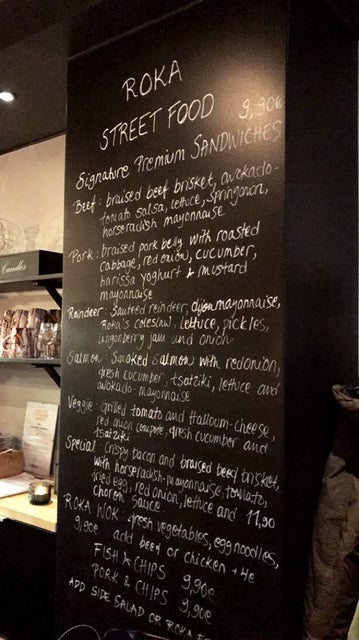 ROKA
STREET FOOD 9,90€
Signature Premium SANDWICHES
Beef: braised beef brisket, avokado-
tomato salsa, lettuce, springonion,
horseradish mayonnaise
Pork: braised pork belly with roasted
cabbage, red onion, cucumber,
harissa yoghurt & mustard
mayonnaise
Reindeer: Sauteed reindeer, dijonmayonnaise,
Roka's coleslaw, lettuce, pickles,
lingonberry jam and onion
Salmon: Smoked salmon with redonion,
fresh cucumber, tsatziki, lettuce and
avokado-mayonnaise
Veggie: Grilled tomato and Halloum-cheese,
red onion compote, fresh cucumber and
tsatziki
Special: Crispy bacon and braised beef brisket,
with horseradish-mayonnaise, tomato,
fried egg, red onion, lettuce and 11,90
choron sauce
ROKA WOK: fresh vegetables, egg noodles,
9,90€ add beef or chicken +4€
FISH & CHIPS 9,90€
PORK & CHIPS 9,90€
ADD SIDE SALAD OR ROKA
Candles